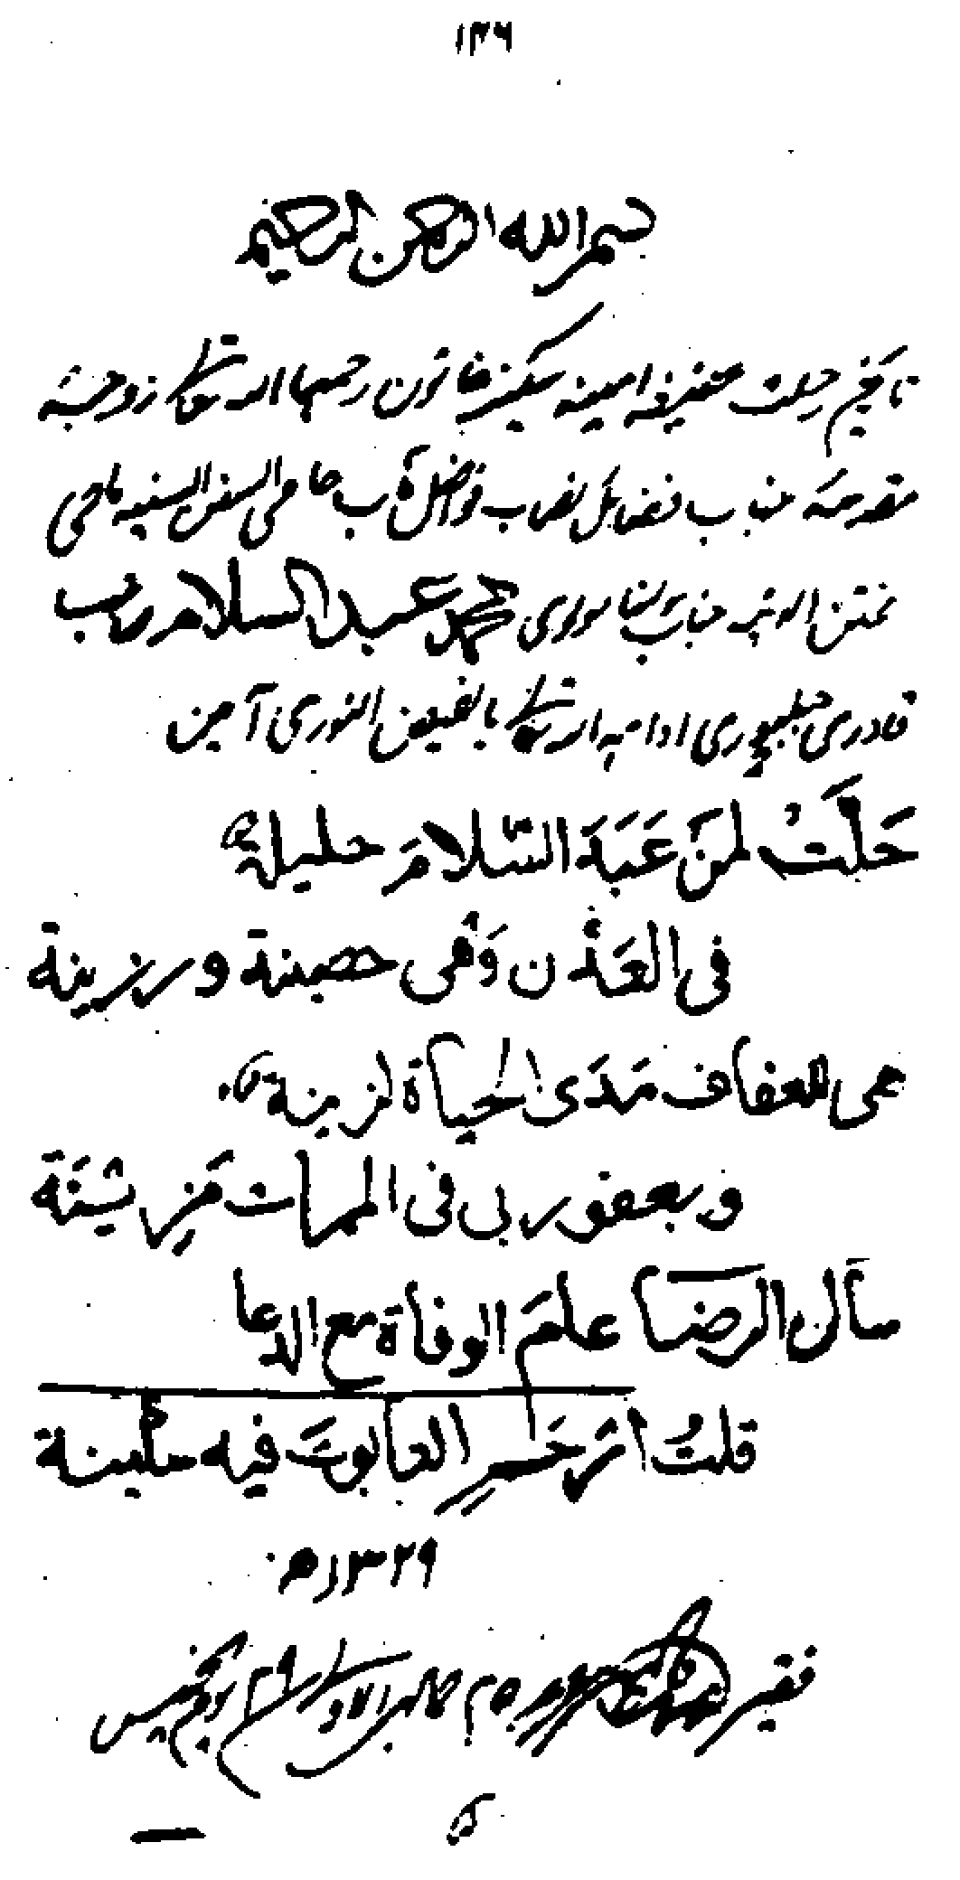 ۱۳۶
بسم الله الرحمن الرحیم
تاریخ رحلت عفیفہ امینہ سکینہ خاتون رحمہا اللہ تعالٰی زوجۂ
مقدسہ جناب فضائل نصاب فواضل مآب حامی السنن السنیہ ماحی
الفتن الدنیہ جناب مولٰنا مولوی محمد عبد السلام صاحب
قادری جبلپوری ادامہ اللہ تعالٰی بالفیض النوری آمین
حَلَّتْ لِمَنْ عَبَدَ السَّلَامَ حلیلۃ
فی العَدْن وَهْی حصینة ورزینة
هی للعفاف مَدَی الحیاة لزینة
وبعفو ربی فی الممات مَزِیْنَة
سأل الرضا عامَ الوفاة مع الدعا
قلتُ ارْحَمِ التابوتَ فیه سکینة
۱۳۲۹ھ
فقیر ۲۵ جمادی الاولٰی